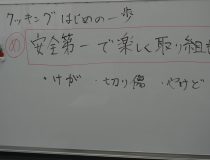 クッキングはじめの一歩
安全第一で楽しく取り組も
・けが ・切り傷 ・やけど